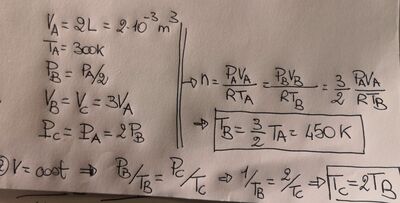 V_A = 2L = 2·10⁻³ m³
T_A = 300K
P_B = P_A/2
V_B = V_C = 3V_A
P_C = P_A = 2P_B
→ n = P_A V_A / RT_A = P_B V_B / RT_B = 3/2 P_A V_A / RT_B
⇒ T_B = 3/2 T_A = 450 K
V = cost ⇒ P_B/T_B = P_C/T_C ⇒ 1/T_B = 2/T_C ⇒ T_C = 2T_B